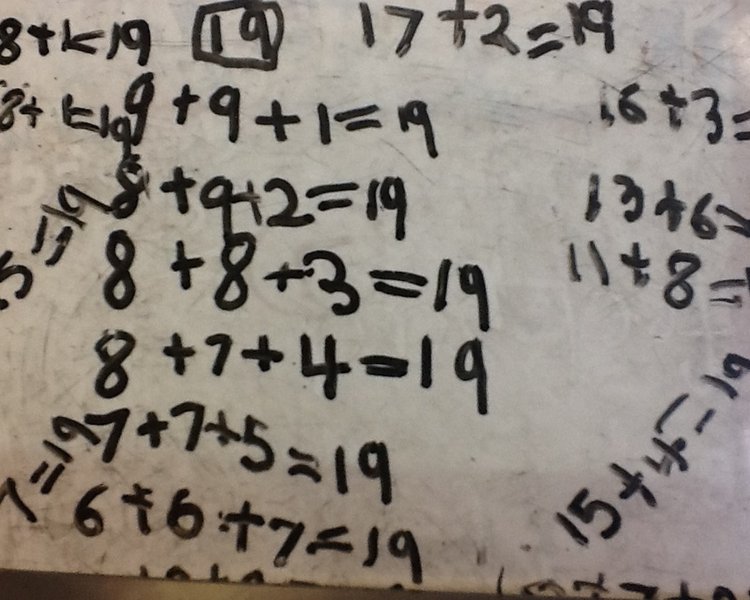 8+1=19 19 17+2=19
8+1=19 9+9+1=19 16+3=
8+9+2=19 13+6
5=19 8+8+3=19 11+8=
8+7+4=19
=19 7+7+5=19 15+4=19
6+6+7=19